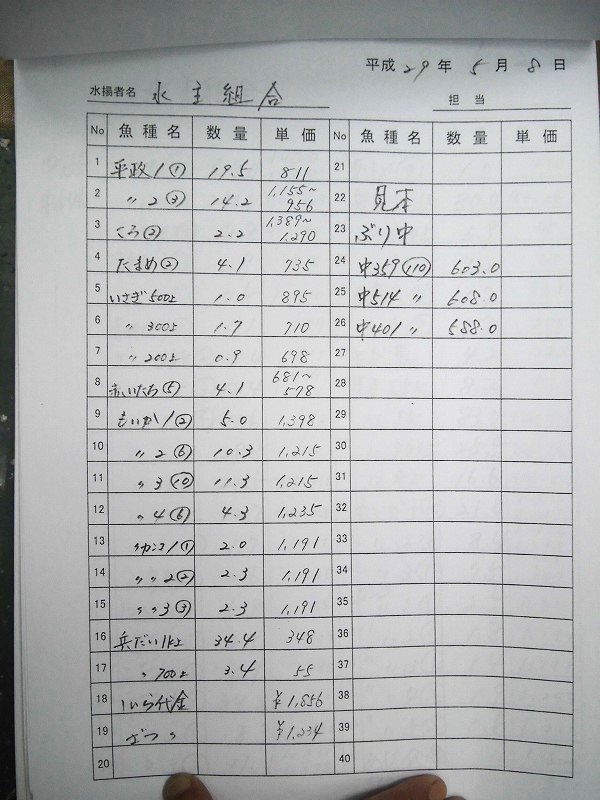 平成 29 年 5 月 8 日
水揚者名 水主組合
担当
No 魚種名 数量 単価 No 魚種名 数量 単価
1 平政1① 19.5 811 21
2 〃2③ 14.2 1,155~956 22 見本
3 くろ② 2.2 1,389~1,290 23 ぶり中
4 たまめ② 4.1 735 24 中359(110) 603.0
5 いさぎ500上 1.0 895 25 中514 〃 608.0
6 〃 300上 1.7 710 26 中401 〃 588.0
7 〃 200上 0.9 698 27
8 赤いたち⑤ 4.1 681~578 28
9 もいか1② 5.0 1,398 29
10 〃2⑥ 10.3 1,215 30
11 〃3⑩ 11.3 1,215 31
12 〃4⑥ 4.3 1,235 32
13 1① 2.0 1,191 33
14 〃〃2② 2.3 1,191 34
15 〃〃3③ 2.3 1,191 35
16 兵だい1k上 34.4 348 36
17 〃700上 3.4 55 37
18 しいら代金 ¥1,856 38
19 ざつ ¥1,234 39
20 40